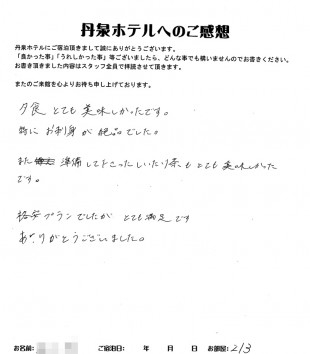 丹泉ホテルへのご感想
丹泉ホテルにご宿泊頂きまして誠にありがとうございます。
「良かった事」「うれしかった事」等ございましたら、どんな事でも構いませんのでお書きください。
お書き頂きました内容はスタッフ全員で拝読させて頂きます。
またのご来館を心よりお待ち申し上げております。
夕食 とても 美味しかったです。
特に お刺身 が 絶品でした。
また 準備 して下さった いたり茶も とても 美味しかった
です。
格安プランでしたが とても 満足です
ありがとうございました。
お名前: ご宿泊日: 年 月 日 お部屋: 213